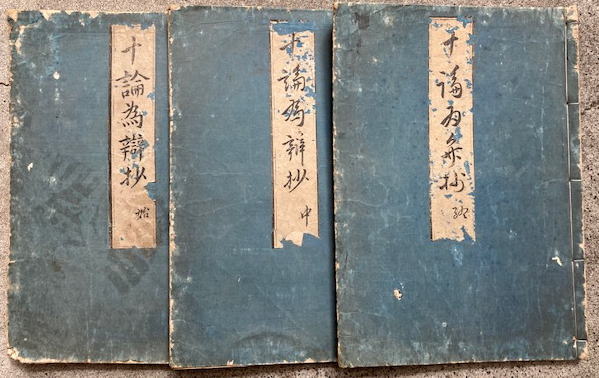 十論為辯抄
始
十論為辯抄
中
十論為弁抄
終